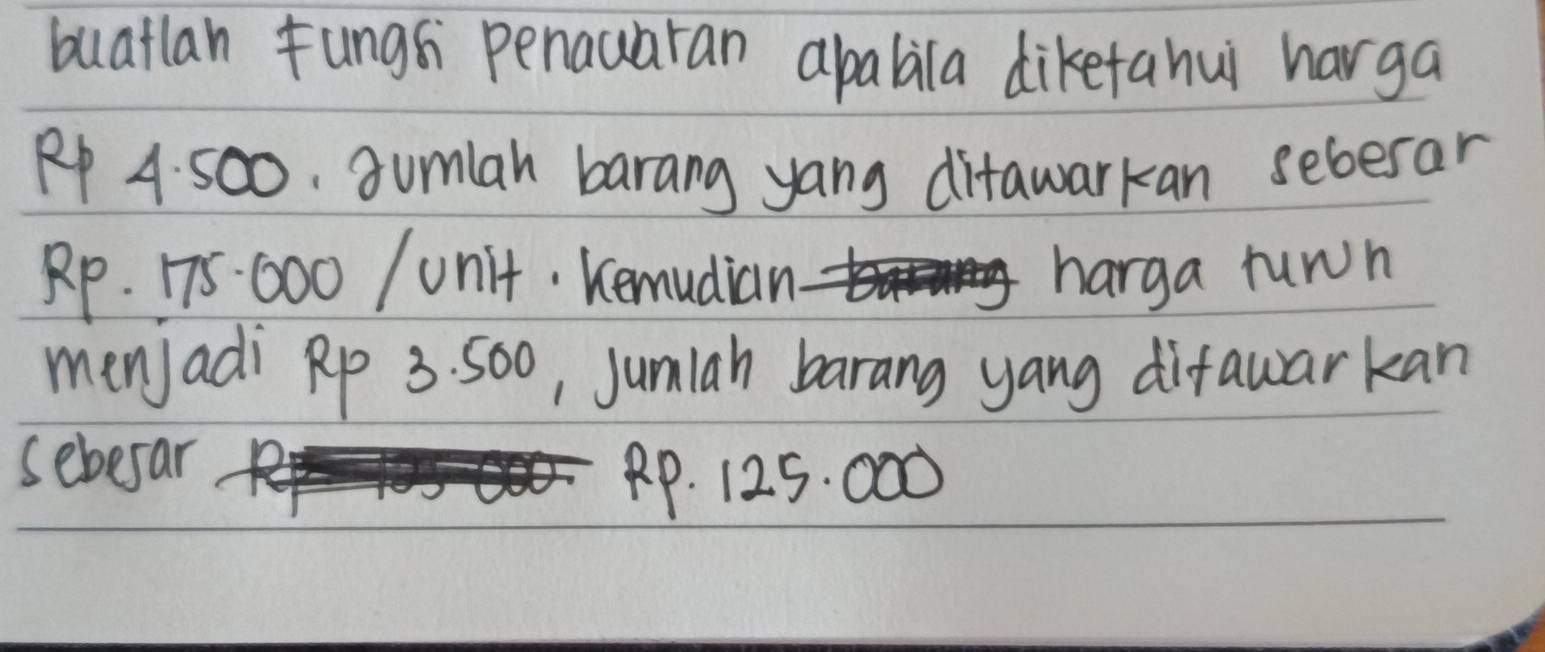 buatlah fungsi penawaran apabila diketahui harga
Rp 4.500. Jumlah barang yang ditawarkan sebesar
Rp. 175.000 / unit. Kemudian harga turun
menjadi Rp 3.500, jumlah barang yang ditawarkan
sebesar Rp. 125.000